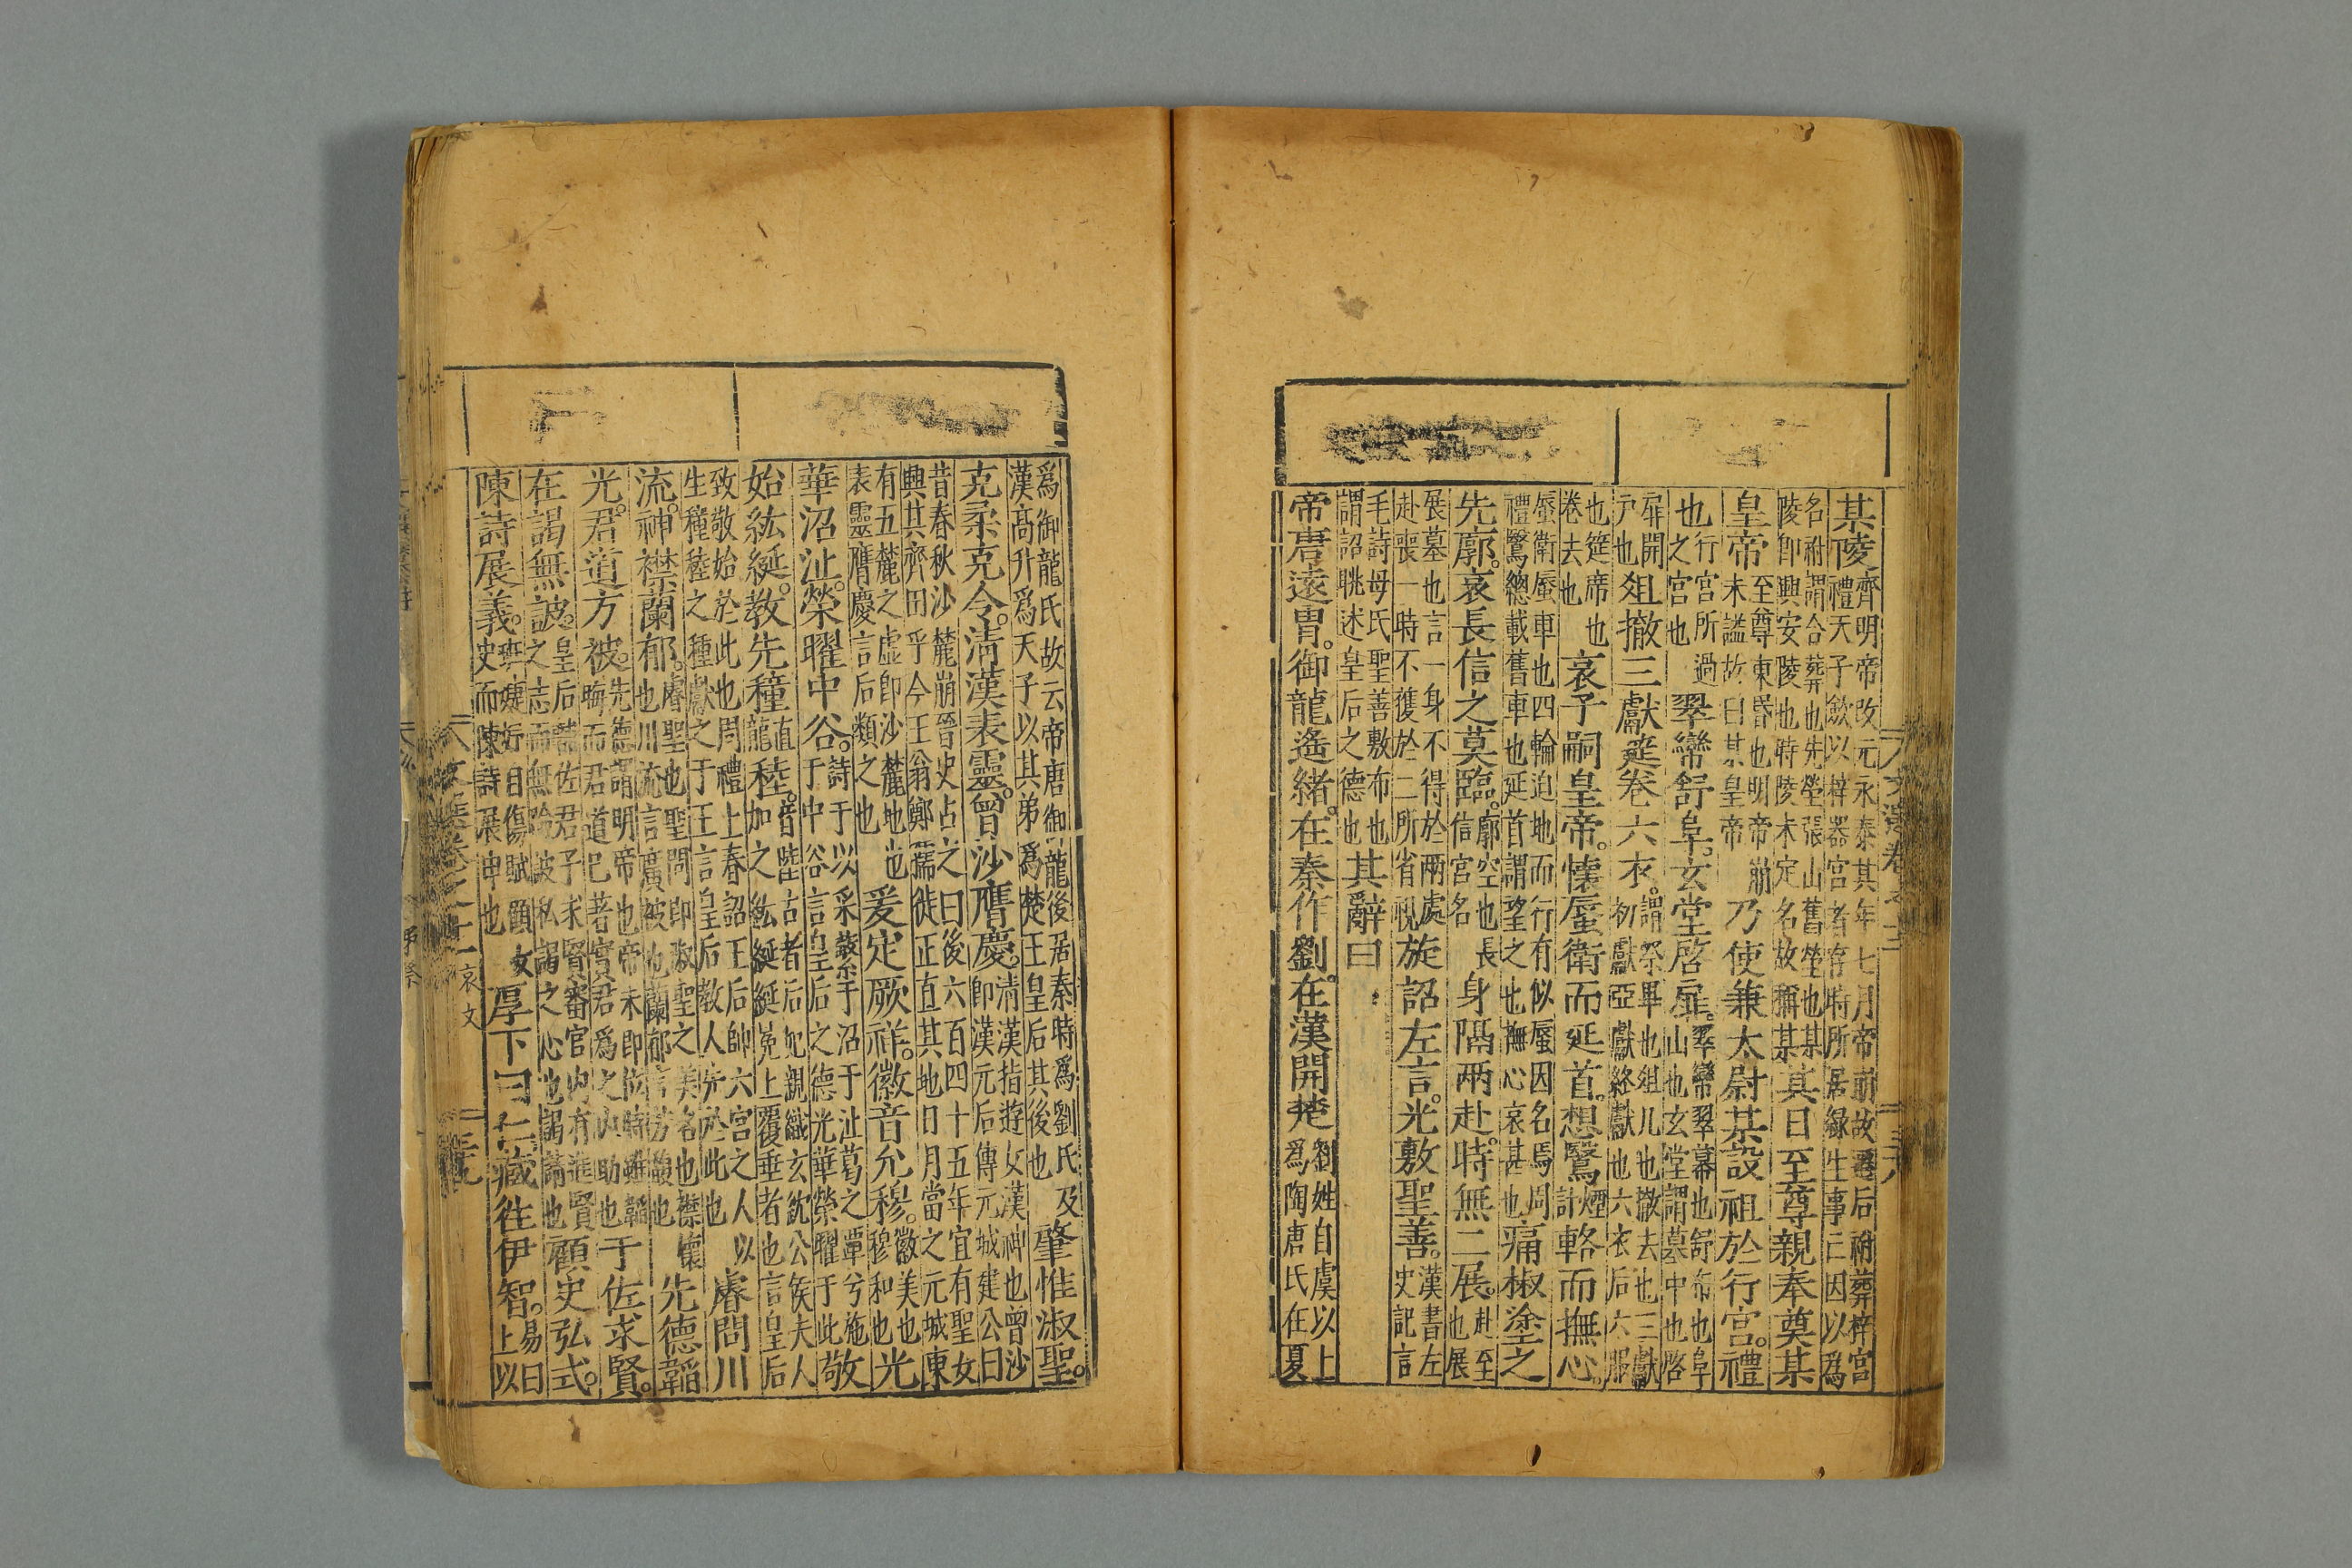 某陵齊明帝改元永泰其年七月帝崩故遷后祔葬梓宮
禮天子斂以梓器宮者存時所居緣生事亡因以爲
名祔謂合葬也先塋張山舊塋也某
陵卽興安陵也時陵未定名故稱某其日至尊親奉奠某
皇帝至尊東昏也明帝崩
未謚故曰某皇帝乃使兼太尉某設祖於行宮。禮
也行宮所過
之宮也翠帟舒阜。玄堂啓扉。翠帟翠幕也舒布也阜
山也玄堂謂墓中也啓
扉開
戶也俎撤三獻筵卷六衣。謂祭畢也俎几也撤去也三獻
初獻亞獻終獻也六衣后六服
也筵席也
卷去也哀子嗣皇帝。懷蜃衛而延首。想鷖輅而撫心。
蜃衛蜃車也四輪迫地而行有似蜃因名焉周
禮鷖總載舊車也延首謂望之也撫心哀甚也痛椒塗之
先廓。哀長信之莫臨。廓空也長
信宮名身隔兩赴。時無二展。赴至
也展
展墓也言一身不得於兩處
赴喪一時不獲於二所省視旋詔左言。光敷聖善。漢書左
史記言
毛詩母氏聖善敷布也
謂詔眺述皇后之德也其辭曰
帝唐遠胄。御龍遙緒。在秦作劉。在漢開楚劉姓自虞以上
爲陶唐氏在夏
爲御龍氏故云帝唐御龍後居秦時爲劉氏及
漢高升爲天子以其弟爲楚王皇后其後也肇惟淑聖。
克柔克令。清漢表靈。曾沙膺慶。清漢指遊女漢神也曾沙
卽漢元后傳元城建公曰
昔春秋沙麓崩晉史占之曰後六百四十五年宜有聖女
興其齊田乎今王翁孺徙正直其地日月當之元城東
有五麓之虛卽沙麓地也
表靈膺慶言后類之也爰定厥祥。徽音允穆。徽美也
穆和也光
華沼沚。榮曜中谷。詩于以采蘩于沼于沚葛之覃兮施
于中谷言皇后之德光華榮曜于此敬
始紘綖。敎先穜稑。
加之紘綖綖冕上覆垂者也言皇后
致敬始於此也周禮上春詔王后帥六宮之人以
生穜稑之種獻之于王言皇后敎人先於此也睿問川
流。神襟蘭郁。睿聖也聖問卽淑聖之美名也襟懷
也川流言廣被也蘭郁言芳馥也先德韜
光。君道方被。先德謂明帝也帝未卽位時雖韜
晦而君道已著實君爲之內助也于佐求賢。
在謁無詖。皇后輔佐君子求賢審官內有進賢
之志而無險詖私謁之心也謁請也顧史弘式。
陳詩展義。班婕妤自傷賦顧女
史而陳詩展申也厚下曰仁藏往伊智。易曰
上以
哀文